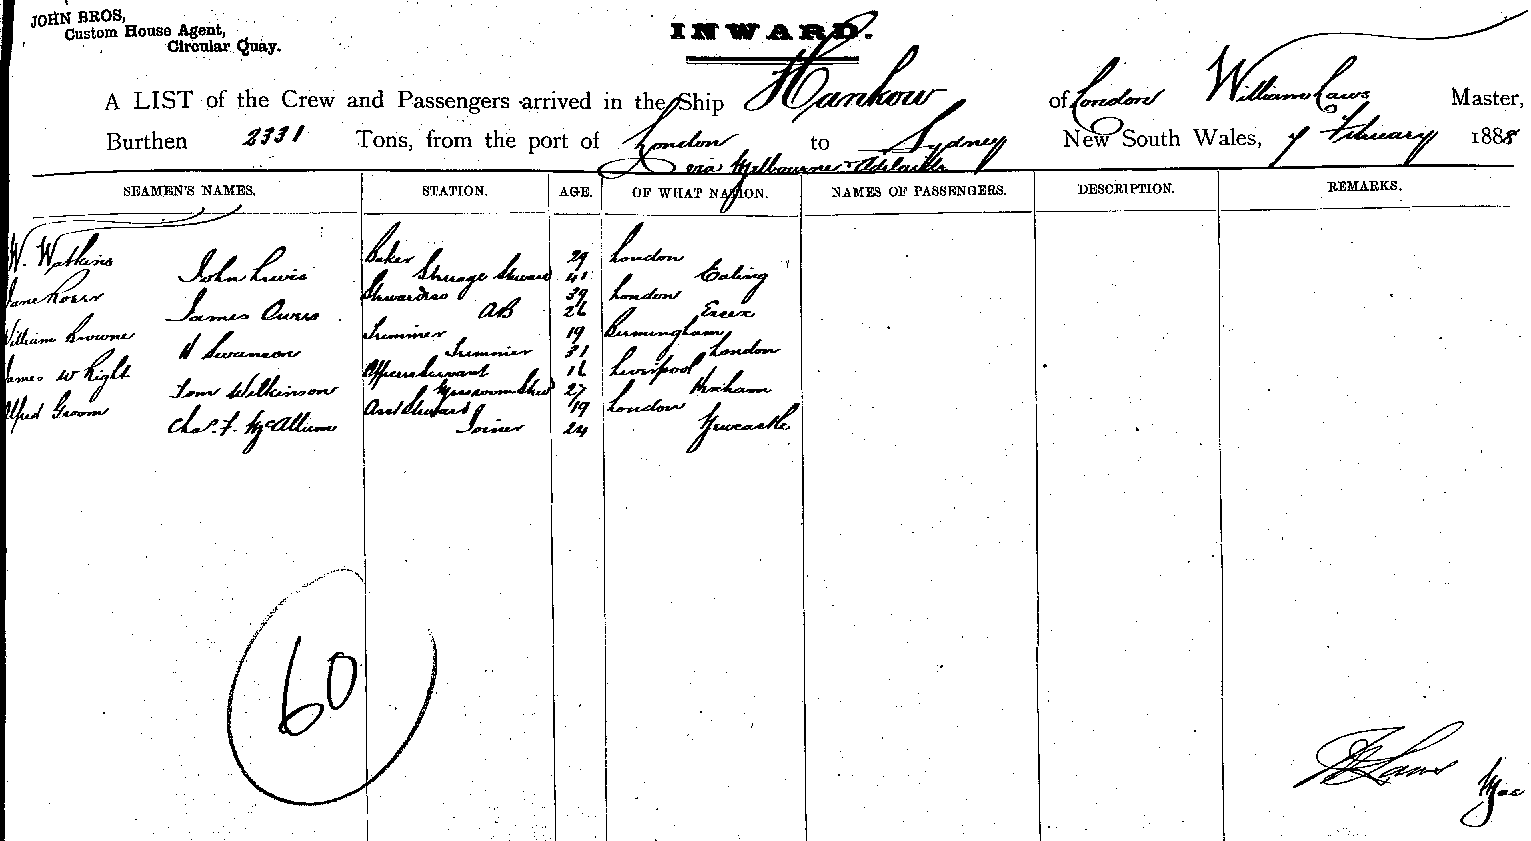 JOHN BROS,
Custom House Agent,
Circular Quay.
INWARD.
A LIST of the Crew and Passengers arrived in the Ship Hankow of London William Laws Master,
Burthen 2331 Tons, from the port of London to Sydney New South Wales, 7 February 1888
via Melbourne & Adelaide
SEAMEN'S NAMES. STATION. AGE. OF WHAT NATION. NAMES OF PASSENGERS. DESCRIPTION. REMARKS.
W. Watkins Baker 29 London
John Lewis Steerage Steward 41 Ealing
Jane Stewardess 39 London
James Owers AB 26 Essex
William Browne Trimmer 19 Birmingham
H Swanson Trimmer 31 London
James Wright Officers Servant 16 Liverpool
Tom Wilkinson Messroom Stewd 27 Hexham
Alfred Groom Asst Steward 19 London
Chas. F. Joiner 24 Newcastle
60
Laws